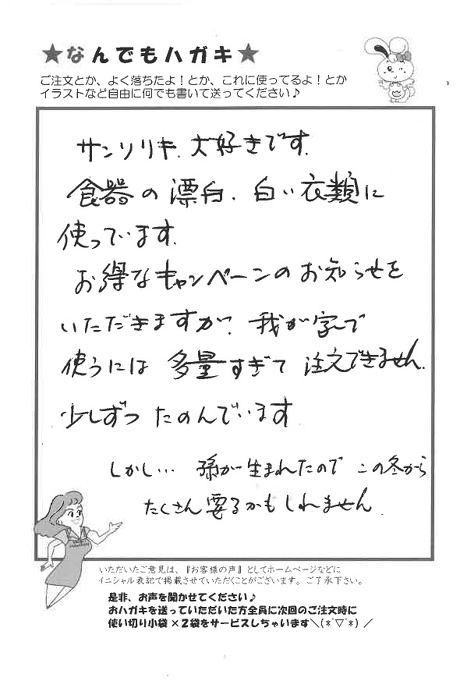 ★なんでもハガキ★
ご注文とか、よく落ちたよ！とか、これに使ってるよ！とか
イラストなど自由に何でも書いて送ってください♪
サンソリキ、大好きです。
食器の漂白、白い衣類に
使っています。
お得なキャンペーンのお知らせを
いただきますが、我が家で
使うには多量すぎて注文できません。
少しずつたのんでいます
しかし… 孫が生まれたので この冬から
たくさん要るかもしれません。
いただいたご意見は、『お客様の声』としてホームページなどに
イニシャル表記で掲載させていただくことがございます。ご了承下さい。
是非、お声を聞かせてください♪
おハガキを送っていただいた方全員に次回のご注文時に
使い切り小袋×2袋をサービスしちゃいます＼(*ˊ▽ˋ*)／